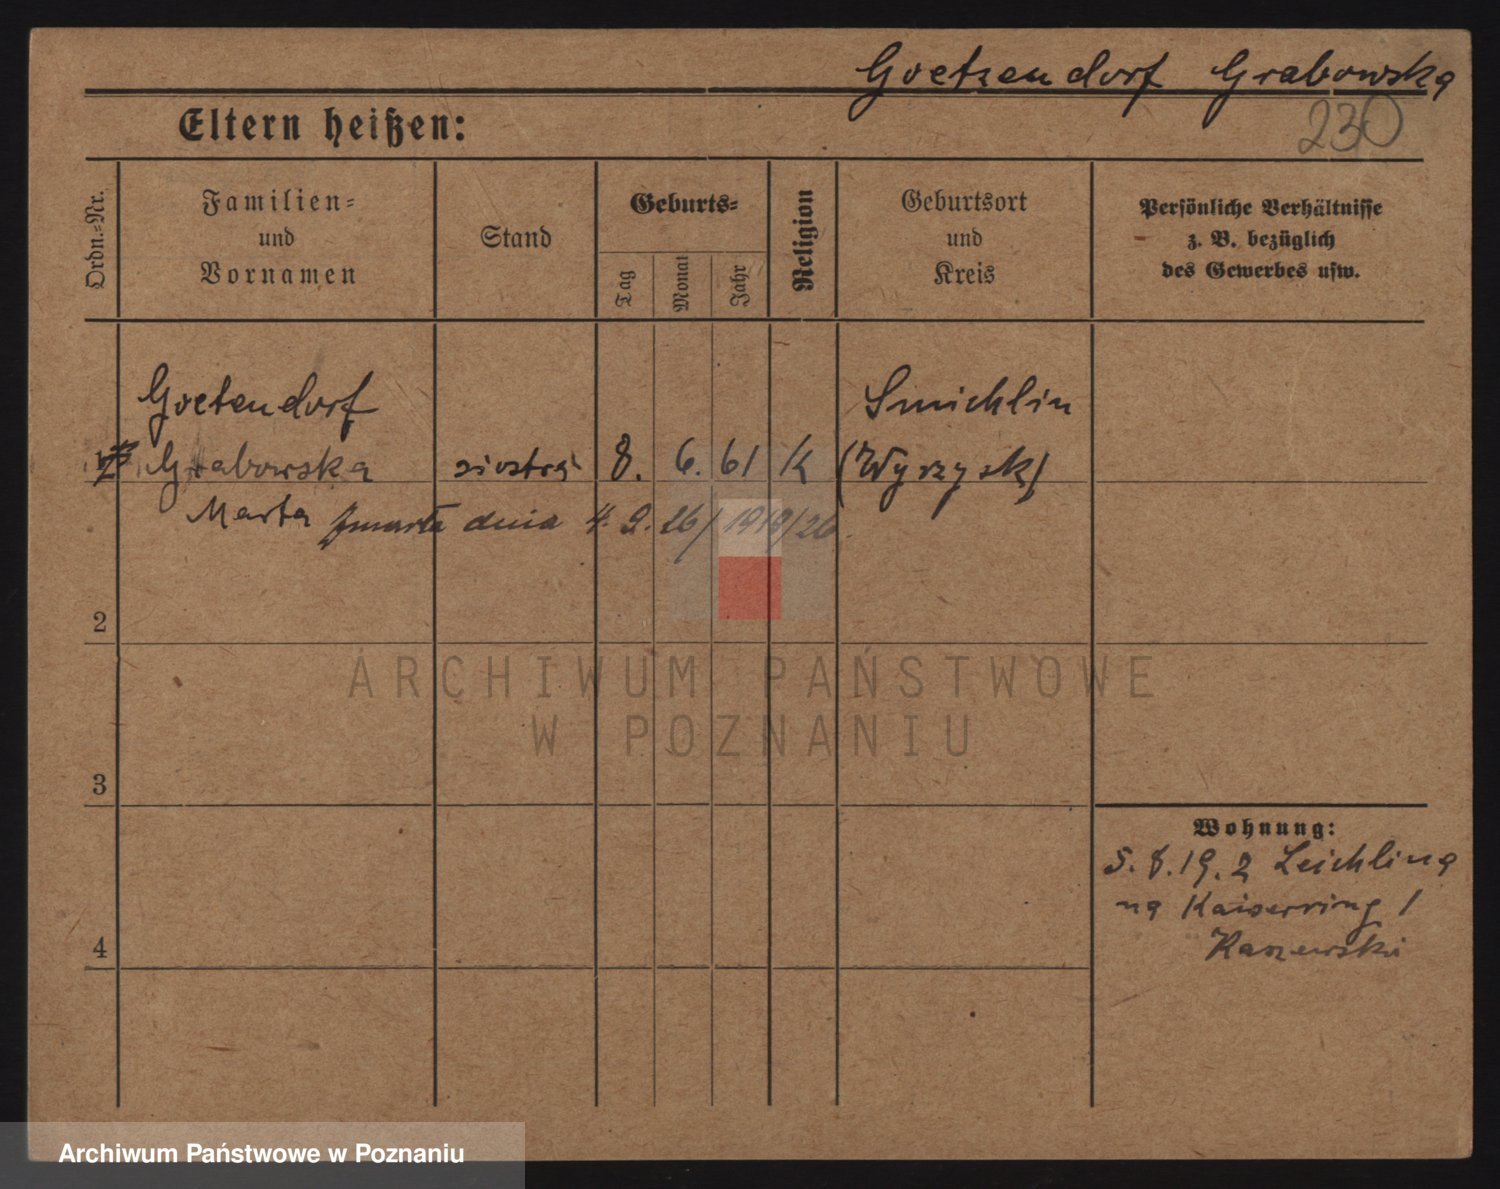 Goetzendorf Grabowska
230
Eltern heißen:
Ordn.=Nr.
Familien=
und
Vornamen
Stand
Geburts=
Tag
Monat
Jahr
Religion
Geburtsort
und
Kreis
Persönliche Verhältnisse
z. B. bezüglich
des Gewerbes usw.
Goetendorf
Smichlin
1 Grabowska siostra 8. 6. 61 K (Wyrzysk)
Marta zmarła dnia 4. 9. 26/ 1918/26.
2
ARCHIWUM PAŃSTWOWE
W POZNANIU
3
Wohnung:
5. 8. 19. 2 Leichling
na Kaiserring 1
4
Kaszewski
Archiwum Państwowe w Poznaniu